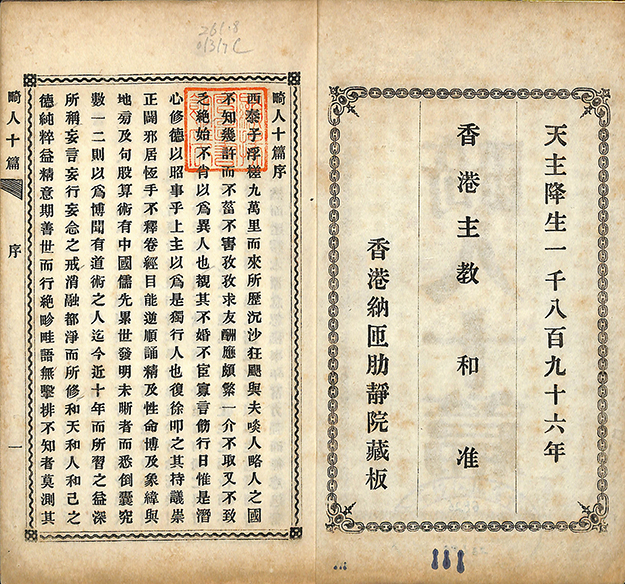 天主降生一千八百九十六年
香港主教和准
香港納匝肋靜院藏板
111
畸人十篇序
西泰子浮槎九萬里而來所歷沉沙狂颶與夫啖人略人之國
不知幾許而不菑不害孜孜求友酬應頗繁一介不取又不致
乏絕始不肖以爲異人也覩其不婚不宦寡言飭行日惟是潛
心修德以昭事乎上主以爲是獨行人也復徐叩之其持議崇
正闢邪居恆手不釋卷經目能逆順誦精及性命博及象緯輿
地旁及句股算術有中國儒先累世發明未晰者而悉倒囊究
數一二則以爲博聞有道術之人迄今近十年而所習之益深
所稱妄言妄行妄念之戒消融都淨而所修和天和人和己之
德純粹益精意期善世而行絕畛畦語無擊排不知者莫測其
畸人十篇 序 一